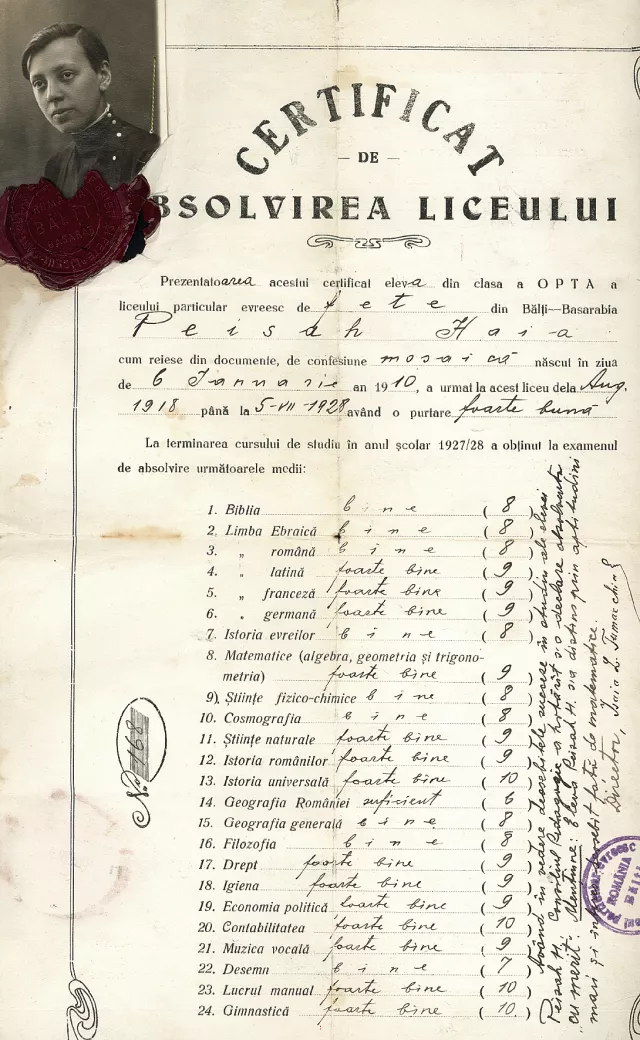 CERTIFICAT
— DE —
ABSOLVIREA LICEULUI
Prezentatoarea acestui certificat eleva din clasa a OPTA a
liceului particular evreesc de fete din Bălți—Basarabia
Peisah Haia
cum reiese din documente, de confesiune mosaică născut în ziua
de 6 Ianuarie an 1910, a urmat la acest liceu dela Aug.
1918 până la 5-VII-1928 având o purtare foarte bună
La terminarea cursului de studiu în anul școlar 1927/28 a obținut la examenul
de absolvire următoarele medii:
1. Biblia bine (8)
2. Limba Ebraică bine (8)
3. „ română bine (8)
4. „ latină foarte bine (9)
5. „ franceză foarte bine (9)
6. „ germană foarte bine (9)
7. Istoria evreilor bine (8)
8. Matematice (algebra, geometria și trigono-
metria) foarte bine (9)
9), Științe fizico-chimice bine (8)
10. Cosmografia bine (8)
11. Științe naturale foarte bine (9)
12. Istoria românilor foarte bine (9)
13. Istoria universală foarte bine (10)
14. Geografia României suficient (6)
15. Geografia generală bine (8)
16. Filozofia bine (8)
17. Drept foarte bine (9)
18. Igiena foarte bine (9)
19. Economia politică foarte bine (9)
20. Contabilitatea foarte bine (10)
21. Muzica vocală foarte bine (9)
22. Desemn bine (7)
23. Lucrul manual foarte bine (10)
24. Gimnastică foarte bine (10)
No 168
Având în vedere deosebitele succese în studiu ale elevei
Peisah H. Consiliul Pedagogic a hotărât s'o declare absolventă
„cu merit". Mențiune: Eleva Peisah H. s'a distins prin aptitudini
mari și în deosebit față de matematice.
Director, Isaia L. Tumarchin
ROMÂNIA
BĂLȚI